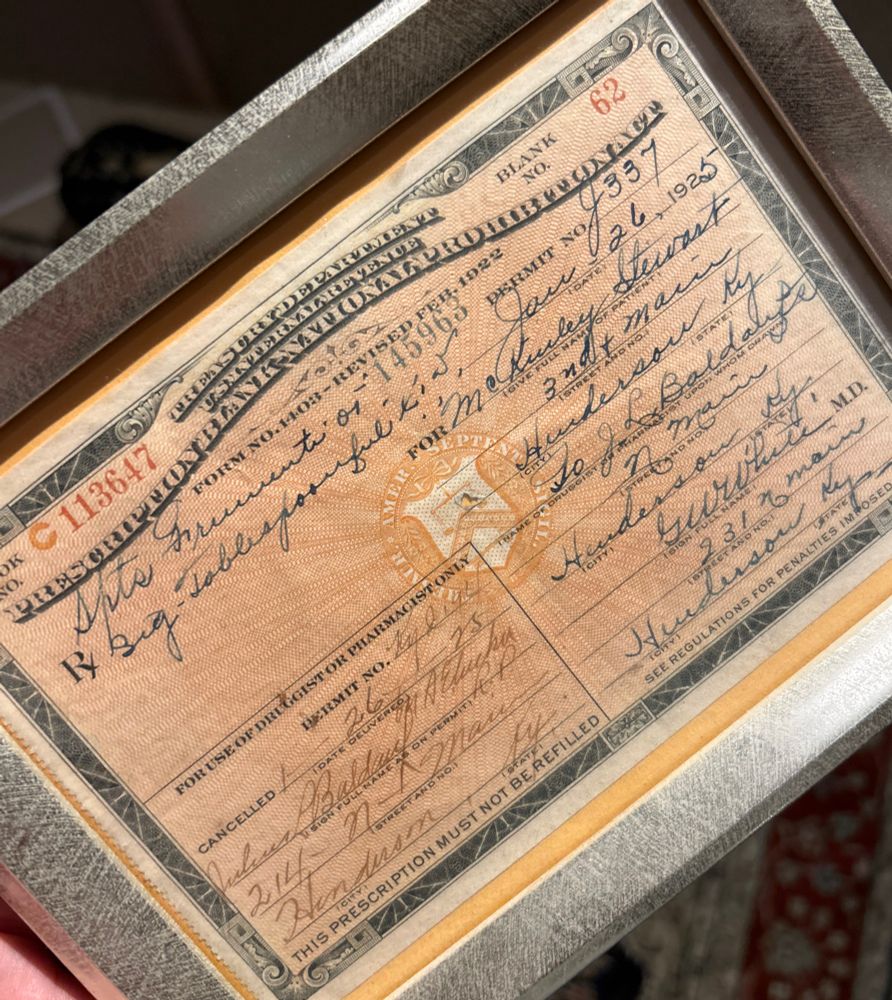 OK NO. C 113647
BLANK NO. 62
TREASURY DEPARTMENT
U.S. INTERNAL REVENUE
PRESCRIPTION BLANK–NATIONAL PROHIBITION ACT
FORM NO. 1403–REVISED FEB. 1922
145963
PERMIT NO. J337
Spts Frumenti oi
Jan 26, 1925
(DATE)
Rx Sig - Tablespoonful
FOR McKinley Stewart
(GIVE FULL NAME OF PATIENT)
3rd + Main
(STREET AND NO.)
Henderson Ky
(CITY) (STATE)
To J L Baldauf
(NAME OF DRUGGIST OR PHARMACIST UPON WHOM DRAWN)
N Main
(STREET AND NO.)
Henderson Ky.
(CITY) (STATE)
GW White, M.D.
(SIGN FULL NAME)
231 N Main
(STREET AND NO.)
Henderson Ky
(CITY) (STATE)
SEE REGULATIONS FOR PENALTIES IMPOSED
FOR USE OF DRUGGIST OR PHARMACIST ONLY
PERMIT NO.
CANCELLED 1 - 26 25
(DATE DELIVERED)
Baldauf
(SIGN FULL NAME AS ON PERMIT)
214 - N - Main
(STREET AND NO.)
Henderson Ky.
(CITY) (STATE)
THIS PRESCRIPTION MUST NOT BE REFILLED